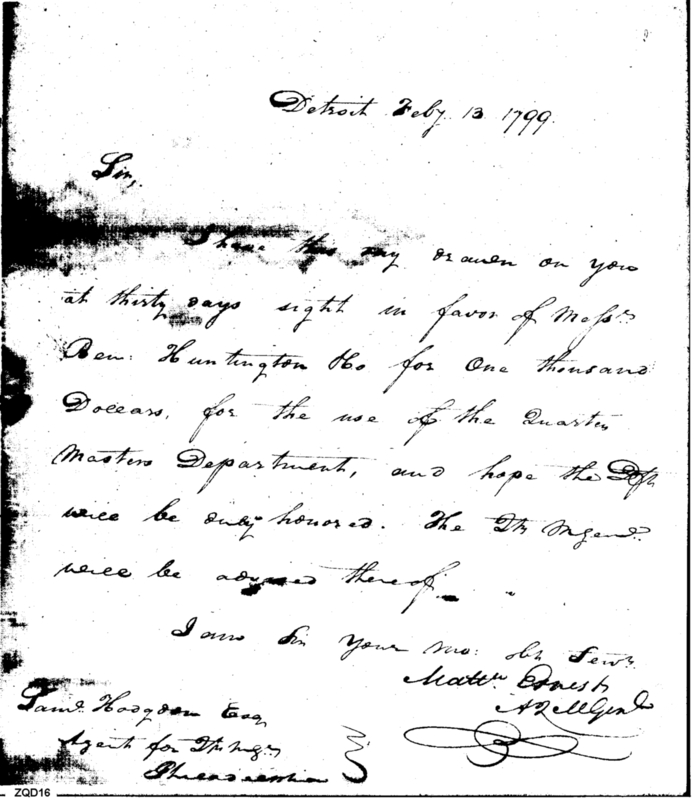 Detroit Feby. 13 1799.
Sir,
I have this day drawen on you
at thirty days sight in favor of Messrs
Ben: Huntington & Co for One thousand
Dollars, for the use of the Quarter
Masters Department, and hope the Dft
will be duly honored. The Qr Mr Genl.
will be advised thereof.
I am Sir your mo: obt Servt.
Mattw Ernest
A Q M Genl
Saml. Hodgdon Esq
Agent for
Philadelphia
ZQD16